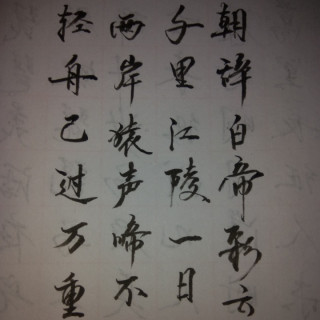 朝辞白帝彩云
千里江陵一日
两岸猿声啼不
轻舟已过万重